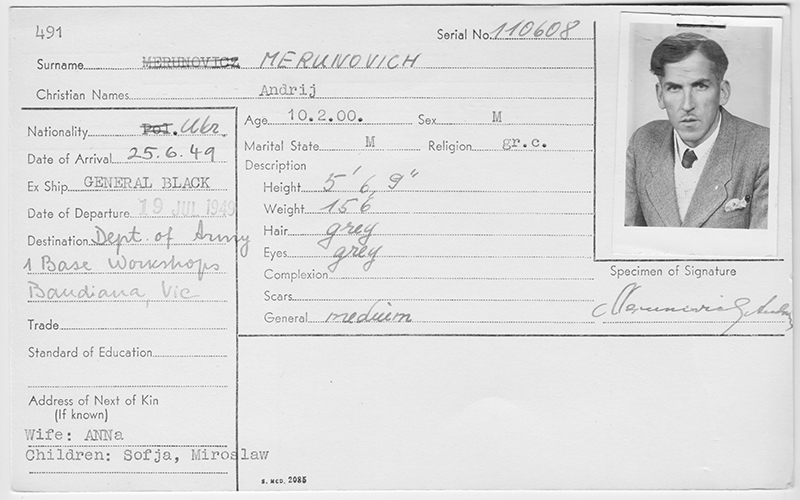 491
Serial No. 110608
Surname MERUNOVICZ MERUNOVICH
Christian Names Andrij
Nationality Pol. Ukr.
Age 10.2.00. Sex M
Date of Arrival 25.6.49
Marital State M Religion gr.c.
Ex Ship GENERAL BLACK
Description
Height 5' 6, 9"
Date of Departure 19 JUL 1949
Weight 156
Destination Dept. of Army
1 Base Workshops
Bandiana, Vic
Hair grey
Eyes grey
Complexion
Scars
General medium
Specimen of Signature
Trade
Standard of Education
Address of Next of Kin
(If known)
Wife: ANNa
Children: Sofja, Miroslaw
S. MCD. 2085